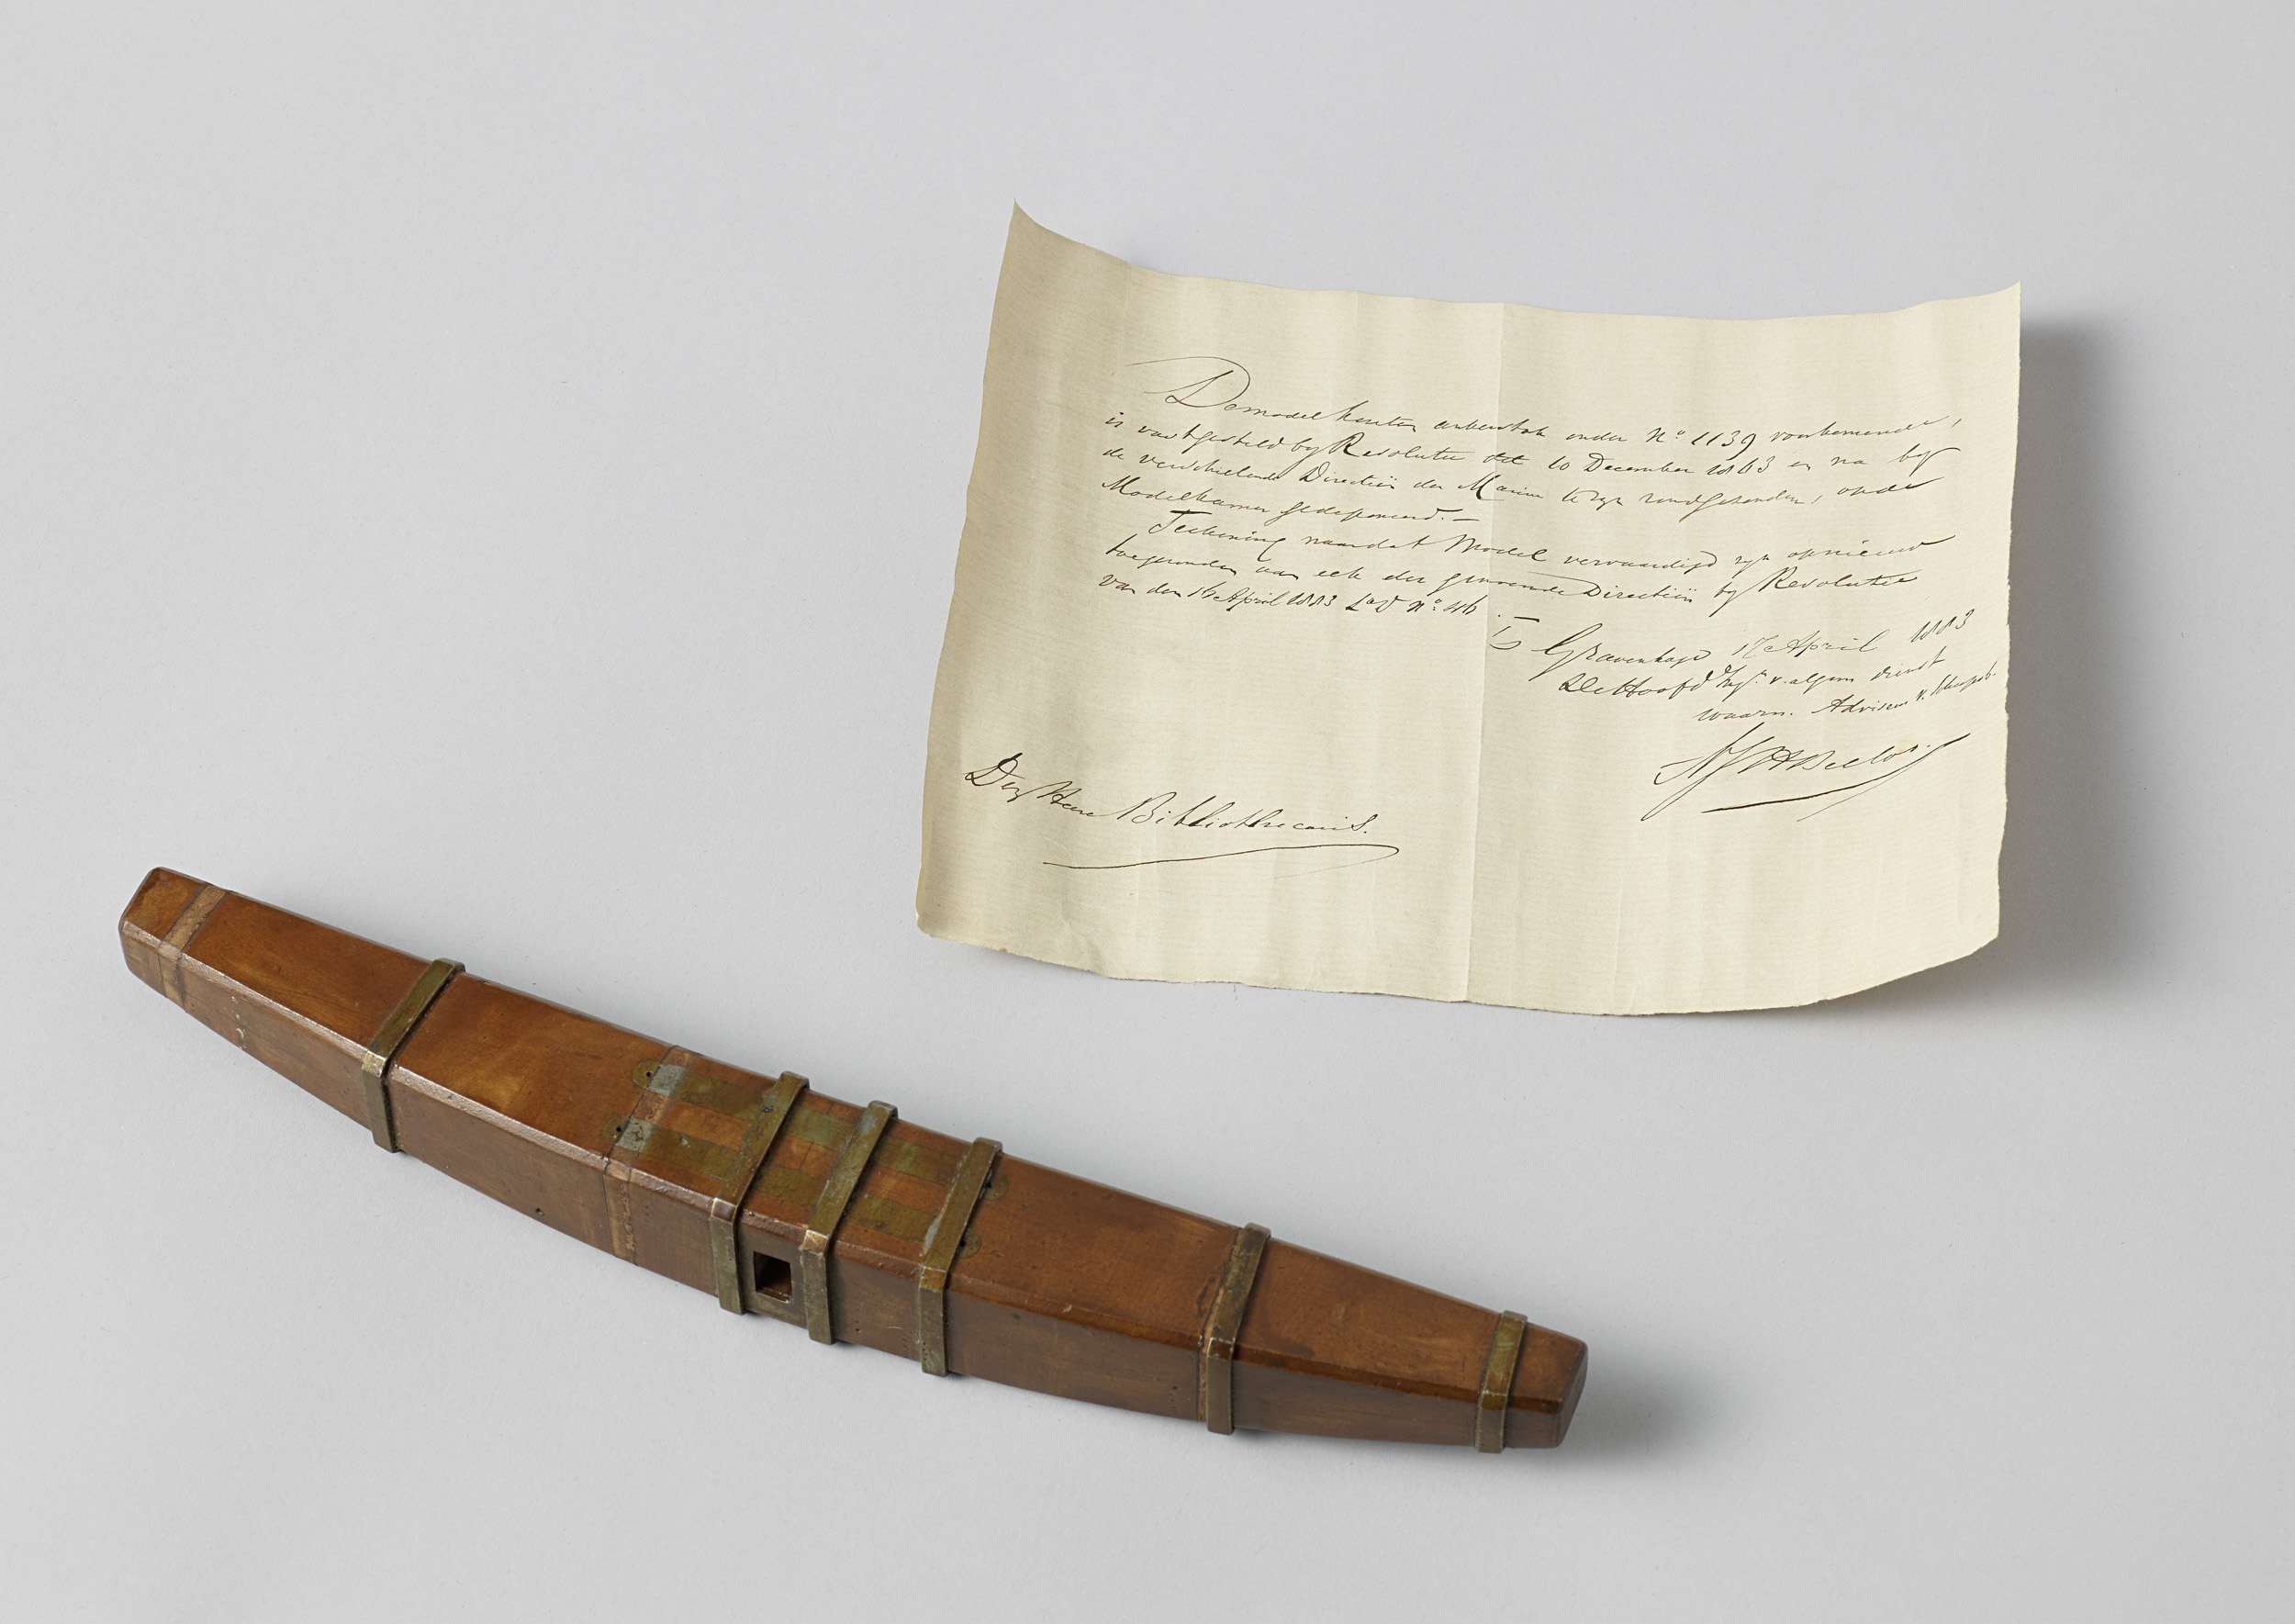 De model houten ankerstok onder No. 1139 voorkomende,
is vastgesteld by Resolutie dd 10 December 1863 en na by
de verschillende Directiën der Marine te zyn rondgezonden, op de
Modelkamer gedeponeerd.—
Teekening naar dat Model vervaardigd zyn opnieuw
toegezonden aan elk der genoemde Directiën by Resolutie
van den 16 April 1883 La D No. 46.
's Gravenhage 17 April 1883
De Hoofd Ingr. v. algem dienst
waarn. Adviseur v.
Den Heer Bibliothecaris.